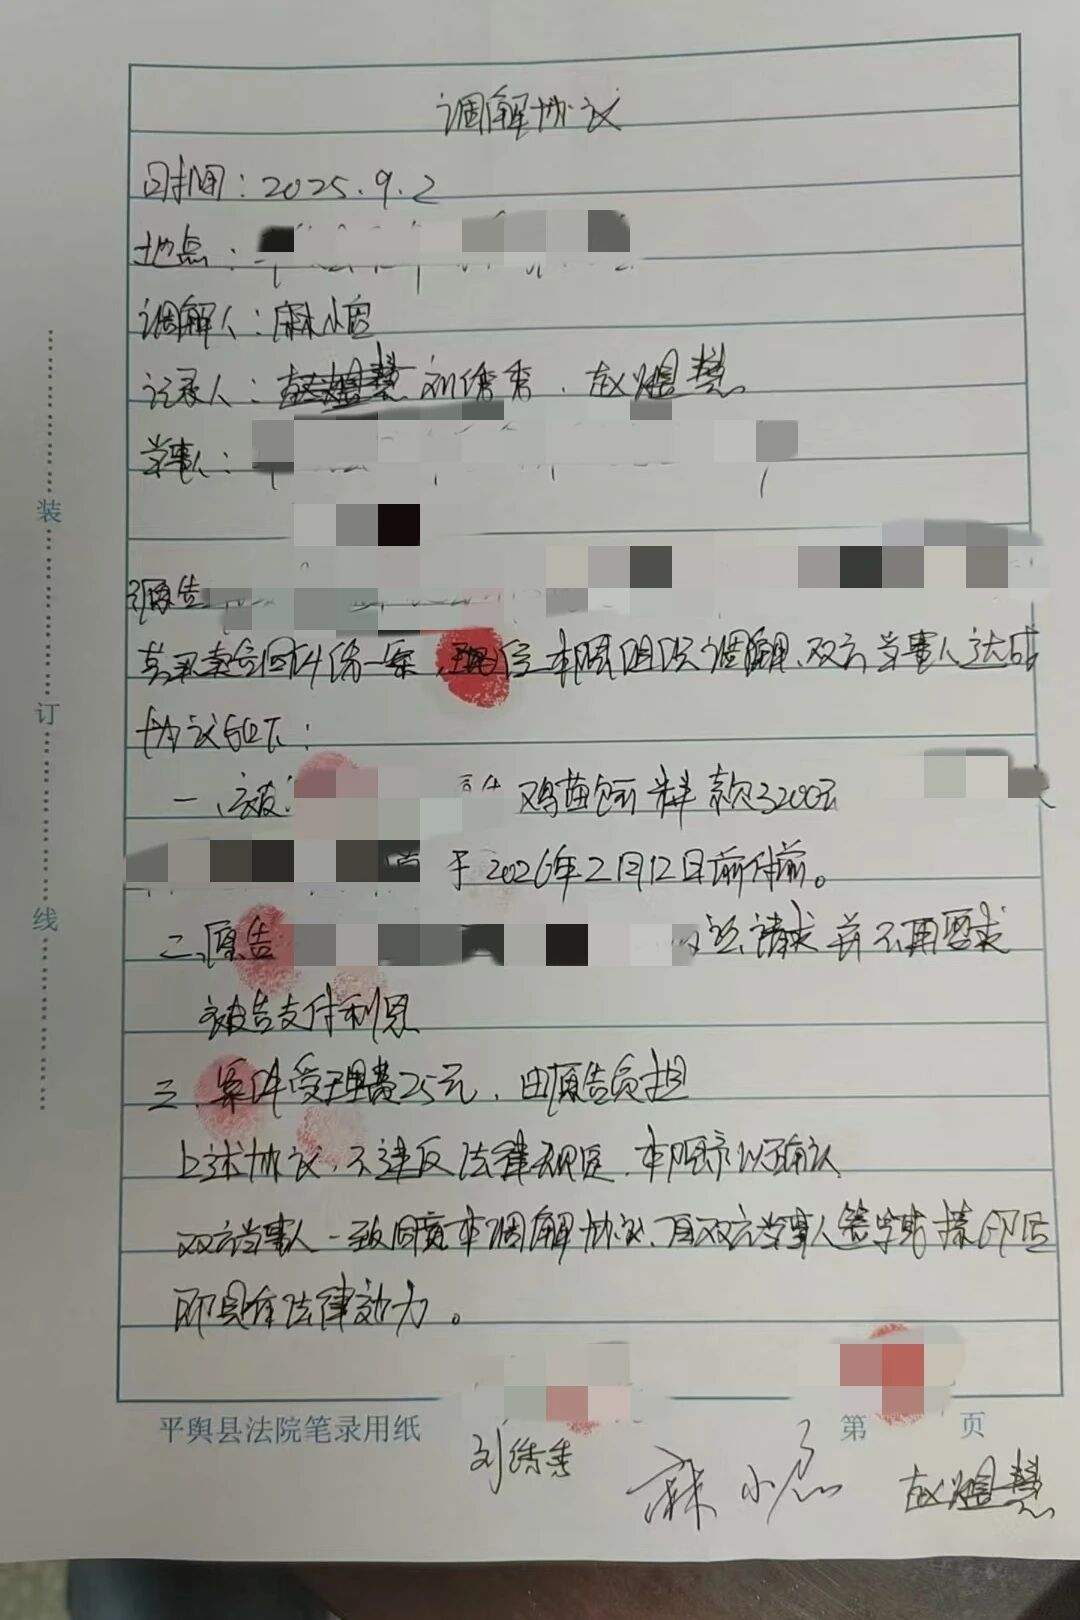 调解协议
时间：2025.9.2
地点：
调解人：麻小
记录人：刘秀秀、赵慧
当事人：
原告
买卖合同纠纷一案，现经本院组织调解，双方当事人达成
协议如下：
一、被 鸡苗饲料款3200元
于2026年2月12日前付前。
二、原告 请求并不再要求
被告支付利息
三、案件受理费25元，由原告负担
上述协议，不违反法律规定，本院予以确认
双方当事人一致同意本调解协议，自双方当事人签字或捺印后
即具有法律效力。
装
订
线
平舆县法院笔录用纸
第 页
刘秀秀
麻小
赵慧